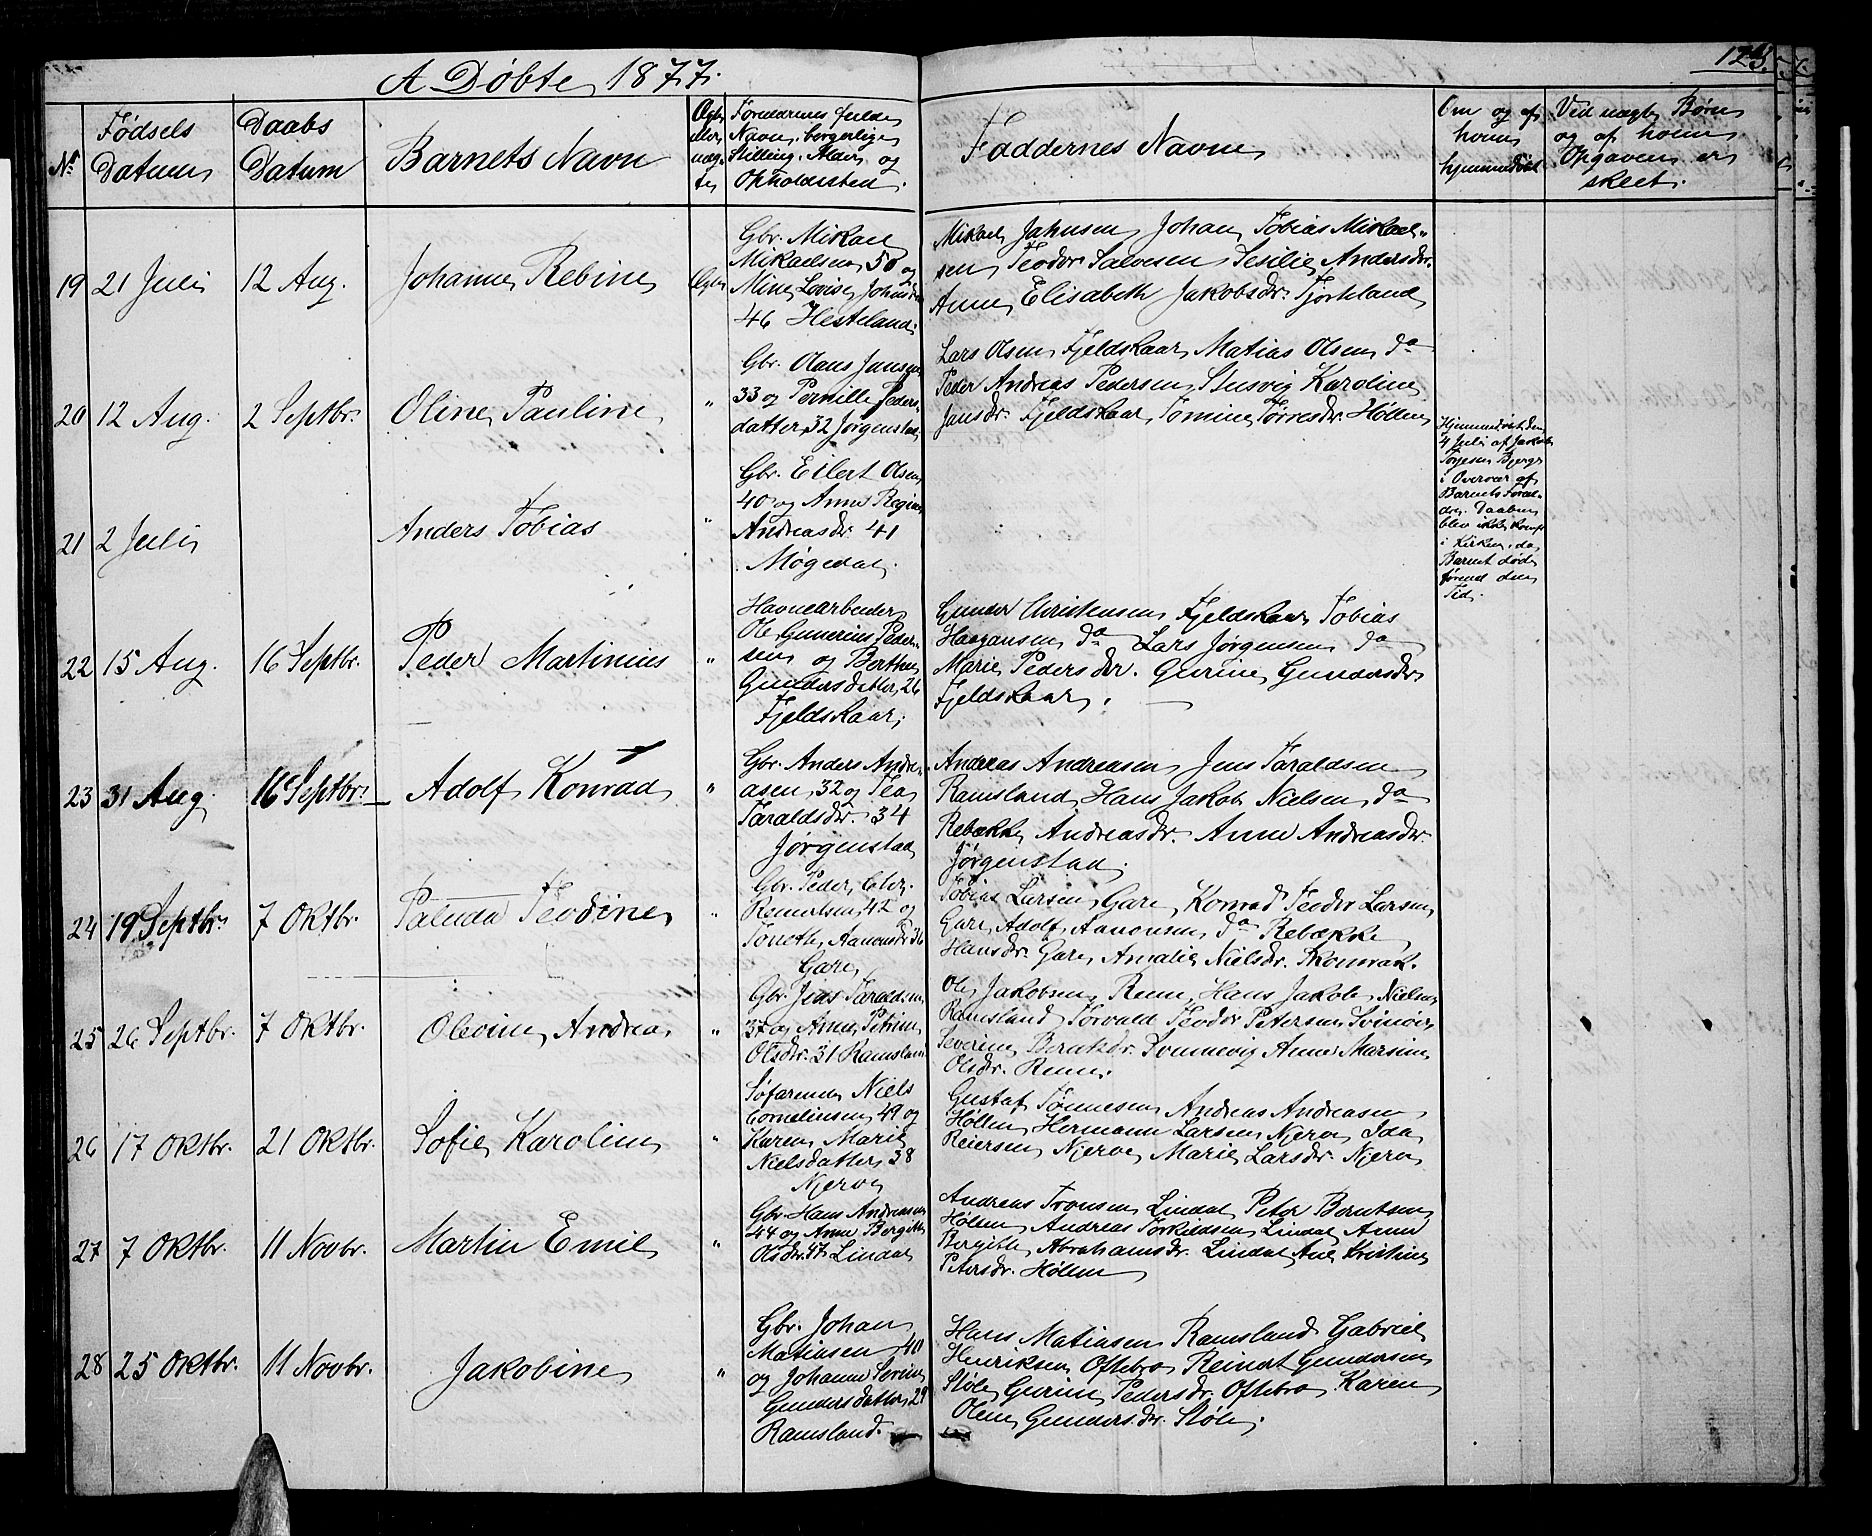 A Døbte 1877.
123.
Nr
Fødsels
Datum
Daabs
Datum
Barnets Navn
Ægte
eller
uæg-
te
Forældrenes fulde
Navn, borgerlige
Stilling, Alder og
Opholdssted.
Faddernes Navne
Om og af
hvem
hjemmedøbt
Ved uægte Børn
og af hvem
Opgaven er
skeet.
19 21 Juli 12 Aug. Johanne Rebine Ægte
Gbr. Mikael
Mikaelsen 50 og
Mine Lovise Johnsdr
46 Hesteland.
Mikael Jahnsen Johan Tobias Mikael-
sen Teodor Salvesen Sesilie Andersdr.
Anne Elisabeth Jakobsdr.
20 12 Aug. 2 Septbr. Oline Pauline "
Gbr. Olaus Jansen
33 og Pernille Peders-
datter 32 Jørgenstad
Lars Olsen Fjeldskaar Matias Olsen do
Peder Andreas Pedersen Karoline
Jansdr. Fjeldskaar, Tomine Torresdr. Høllen
21 2 Juli Anders Tobias "
Gbr. Eilert Olsen
40 og Anne Regine
Andreasdr. 41
Møgedal.
Hjemmedøbt den
4 Juli af Jakob
Torjesen Bjerge
i Overvær af
Barnets Foræl-
dre. Daaben
blev ikke
i Kirken, da
Barnet døde
førend den
Tid.
22 15 Aug. 16 Septbr. Peder Martinius "
Havnearbeider
Ole Gunerius Peder-
sen og Berthe
Gundersdatter 26
Fjeldskaar.
Gunder Christensen Fjeldskaar Tobias
Haagansen do Lars Jørgensen do
Marie Pedersdr. Gurine Gundersdr.
Fjeldskaar.
23 31 Aug. 16 Septbr. Adolf Konrad "
Gbr. Anders Andre-
asen 32 og Tea
Taraldsdr. 34
Jørgenstad
Andreas Andreasen Jens Taraldsen
Ramsland, Hans Jakob Nielsen do
Rebække Andreasdr. Anne Andreasdr.
Jørgenstad.
24 19 Septbr. 7 Oktbr. Paluda Teodine "
Gbr. Peder Chr.
Reinertsen 42 og
Tonette Aanonsdr 36
Gare
Tobias Larsen Gare, Konrad Teodor Larsen
Gare, Adolf Aanonsen do Rebække
Hansdr. Gare, Amalie Nielsdr.
25 26 Septbr. 7 Oktbr. Olevine Andrea "
Gbr. Jens Taraldsen
37 og Anne Petrine
Olsdr. 31 Ramsland
Ole Jakobsen Renn, Hans Jakob Nielsen
Ramsland Torvald Teodor Petersen Svinør
Severine Berntsdr. Sonnevig Anne Marsine
Olsdr. Renn.
26 17 Oktbr. 21 Oktbr. Sofie Karoline "
Søfarende Niels
Cornelinsen 49 og
Karen Marie
Nielsdatter 38
Njerve
Gustaf Tønnesen Andreas Andreasen
Høllen Hermann Larsen Njerve Ida
Reiersen Njerve, Marie Larsdr. Njerve
27 7 Oktbr. 11 Novbr. Martin Emil "
Gbr. Hans Andreasen
44 og Anne Bergitte
Olsdr. Lindal
Andreas Tronsen Lindal Peter Berntsen
Høllen Andreas Torkildsen Lindal Anne
Bergitte Abrahamsdr. Lindal Ane Kristine
Petersdr. Høllen
28 25 Oktbr. 11 Novbr. Jakobine "
Gbr. Johan
Matiasen 40
og Johanne Sørine
Gundersdatter 29
Ramsland.
Hans Matiasen Ramsland Gabriel
Henriksen Oftebro Reinert Gundersen
Støle Gurine Pedersdr. Oftebro Karen
Oline Gundersdr. Støle.